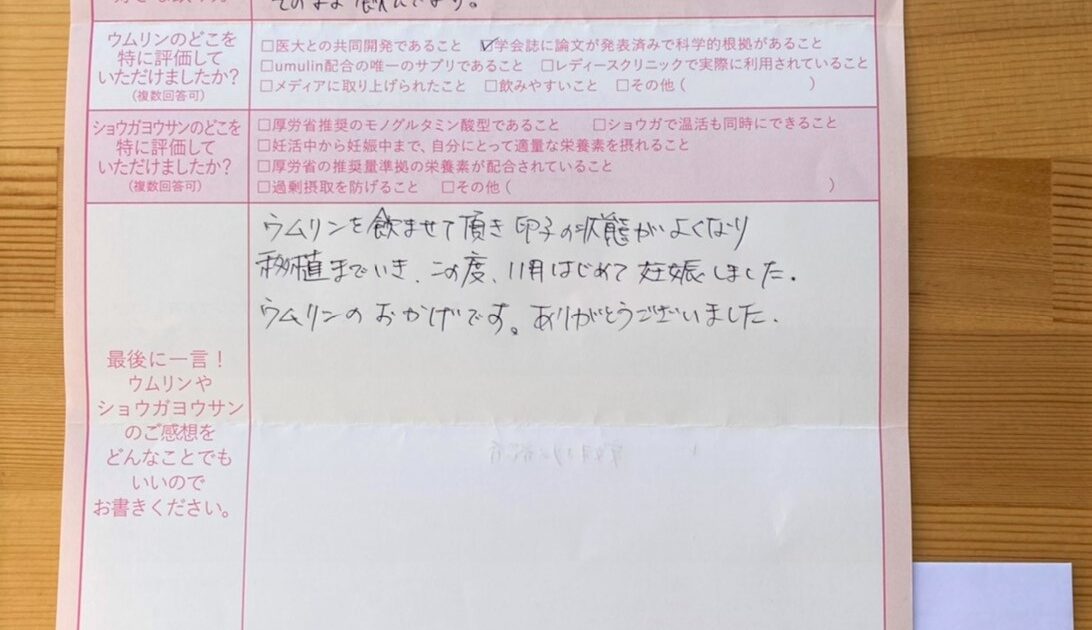 そのまま飲んでます。
ウムリンのどこを
特に評価して
いただけましたか?
(複数回答可)
□医大との共同開発であること ☑学会誌に論文が発表済みで科学的根拠があること
□umulin配合の唯一のサプリであること □レディースクリニックで実際に利用されていること
□メディアに取り上げられたこと □飲みやすいこと □その他( )
ショウガヨウサンのどこを
特に評価して
いただけましたか?
(複数回答可)
□厚労省推奨のモノグルタミン酸型であること □ショウガで温活も同時にできること
□妊活中から妊娠中まで、自分にとって適量な栄養素を摂れること
□厚労省の推奨量準拠の栄養素が配合されていること
□過剰摂取を防げること □その他( )
最後に一言!
ウムリンや
ショウガヨウサン
のご感想を
どんなことでも
いいので
お書きください。
ウムリンを飲ませて頂き 卵子の状態がよくなり
移植までいき、この度、11月はじめて妊娠しました。
ウムリンのおかげです。ありがとうございました。